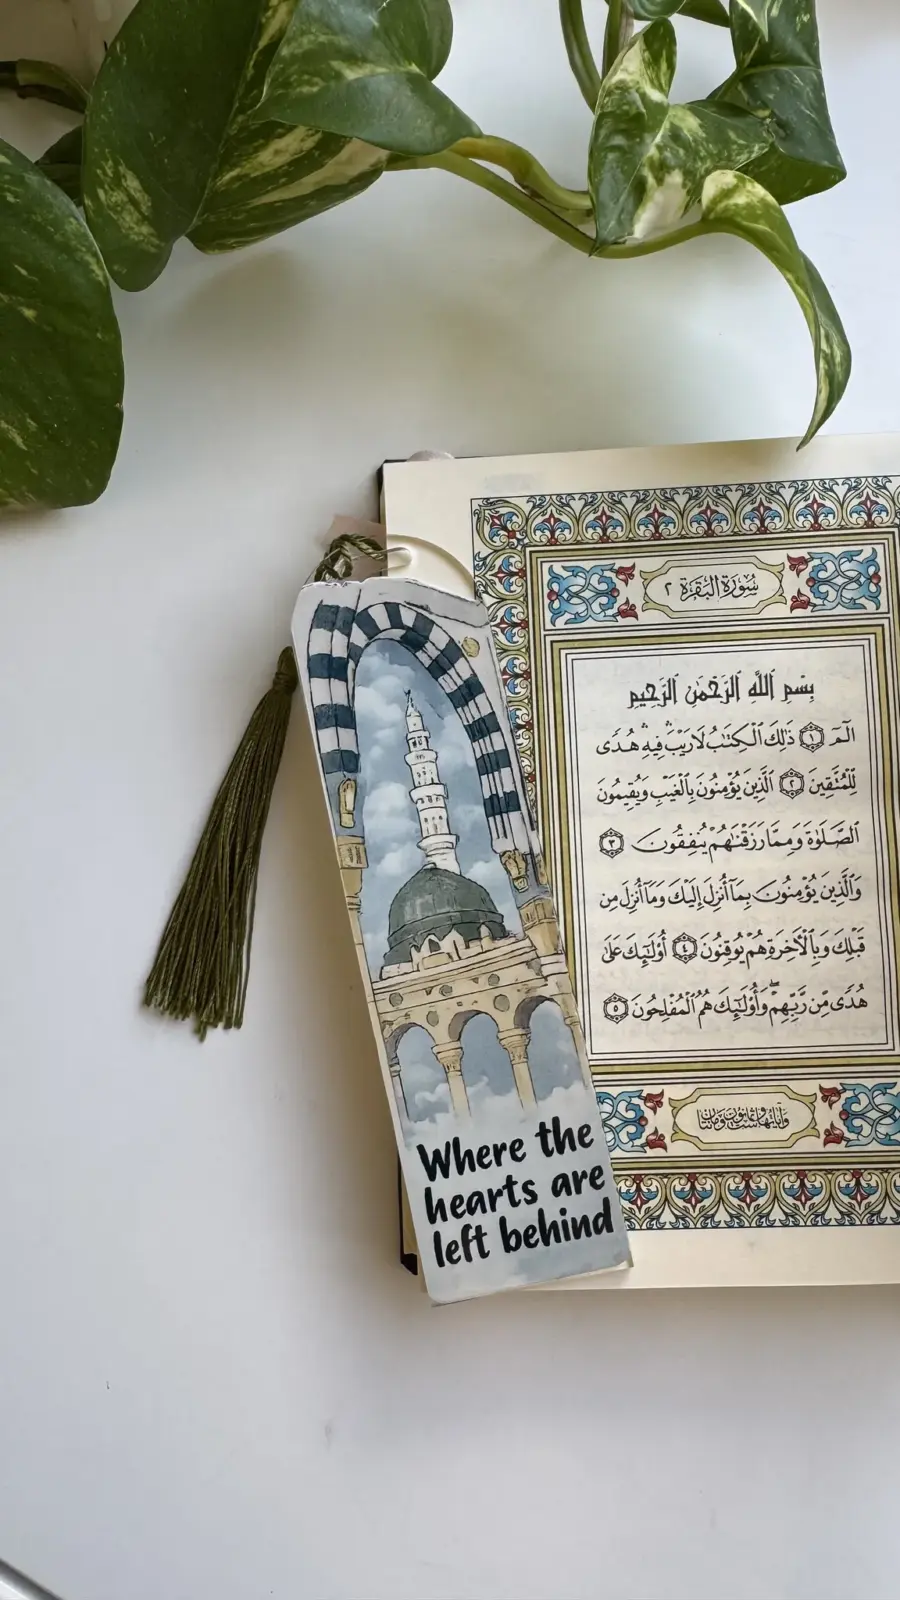 سُورَةُ البَقَرَةِ ٢
بِسْمِ ٱللَّهِ ٱلرَّحْمَٰنِ ٱلرَّحِيمِ
الٓمٓ ١ ذَٰلِكَ ٱلْكِتَٰبُ لَا رَيْبَۛ فِيهِۛ هُدًى
لِّلْمُتَّقِينَ ٢ ٱلَّذِينَ يُؤْمِنُونَ بِٱلْغَيْبِ وَيُقِيمُونَ
ٱلصَّلَوٰةَ وَمِمَّا رَزَقْنَٰهُمْ يُنفِقُونَ ٣
وَٱلَّذِينَ يُؤْمِنُونَ بِمَآ أُنزِلَ إِلَيْكَ وَمَآ أُنزِلَ مِن
قَبْلِكَ وَبِٱلْأَخِرَةِ هُمْ يُوقِنُونَ ٤ أُو۟لَٰٓئِكَ عَلَىٰ
هُدًى مِّن رَّبِّهِمْۖ وَأُو۟لَٰٓئِكَ هُمُ ٱلْمُفْلِحُونَ ٥
Where the
hearts are
left behind